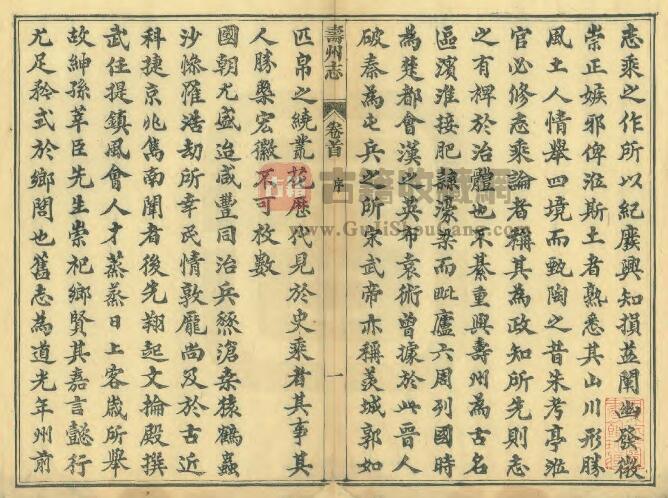 志乘之作所以紀廢興知損益闡幽發微
崇正嫉邪俾涖斯土者熟悉其山川形勝
風土人情舉四境而甄陶之昔朱考亭涖
官必修志乘論者稱其為政知所先則志
之有裨於治體也不綦重與壽州為古名
區濱淮接肥隸濠梁而毗廬六周列國時
為楚都會漢之英布袁術曾據於此晉人
破秦為屯兵之所宋武帝亦稱羨城郭如
壽州志
卷首
序
一
匹帛之繞叢花歷代見於史乘者其事其
人勝槩宏徽不可枚數
國朝尤盛迨咸豐同治兵燹滄桑猿鶴蟲
沙慘罹浩劫所幸民情敦龐尚及於古近
科捷京兆雋南闈者後先翔起文掄殿撰
武任提鎮風會人才蒸蒸日上客歲所舉
故紳孫莘臣先生崇祀鄉賢其嘉言懿行
尤足矜式於鄉閭也舊志為道光年州前
古籍收藏網
www.GujiShouCang.com